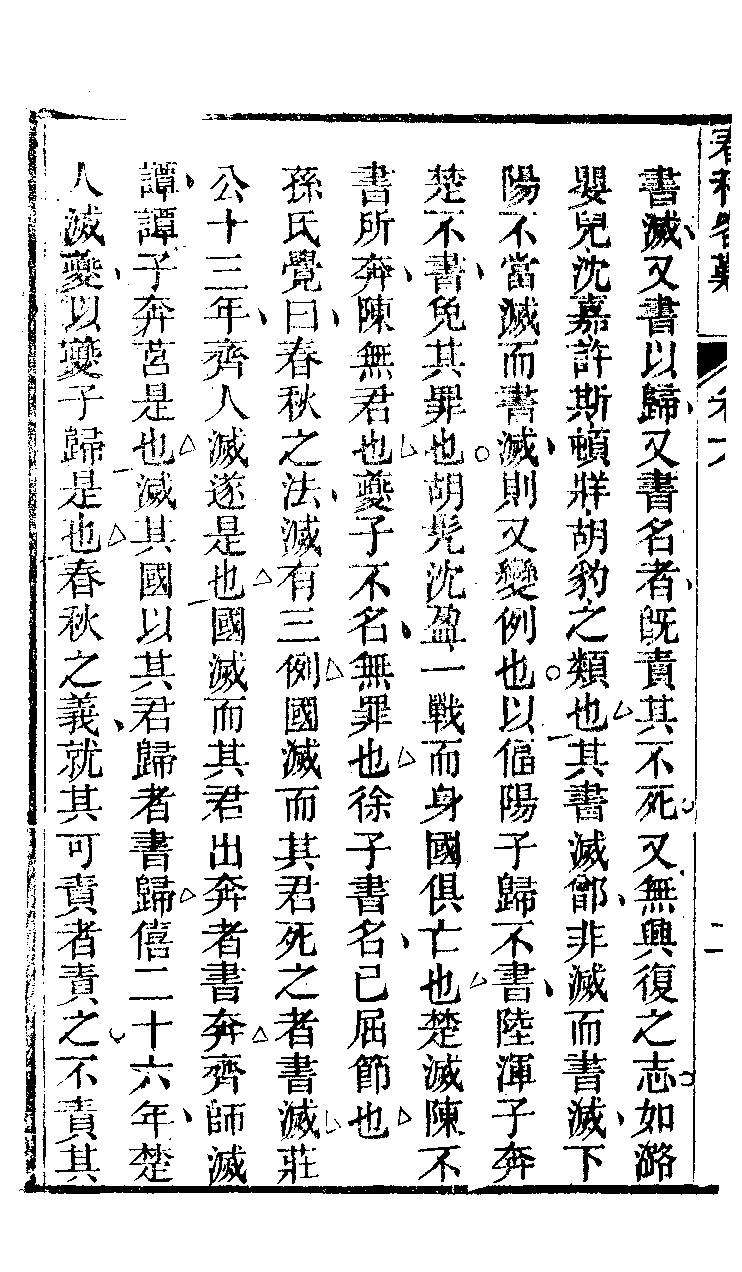 春秋客難
卷一八
二
書滅又書以歸又書名者既責其不死又無興復之志如潞
嬰兒沈嘉許斯頓牂胡豹之類也其書滅鄫非滅而書滅下
陽不當滅而書滅則又變例也以偪陽子歸不書陸渾子奔
楚不書免其罪也胡髠沈盈一戰而身國俱亡也楚滅陳不
書所奔陳無君也夔子不名無罪也徐子書名已屈節也
孫氏覺曰春秋之法滅有三例國滅而其君死之者書滅莊
公十三年齊人滅遂是也國滅而其君出奔者書奔齊師滅
譚譚子奔莒是也滅其國以其君歸者書歸僖二十六年楚
人滅夔以夔子歸是也春秋之義就其可責者責之不責其